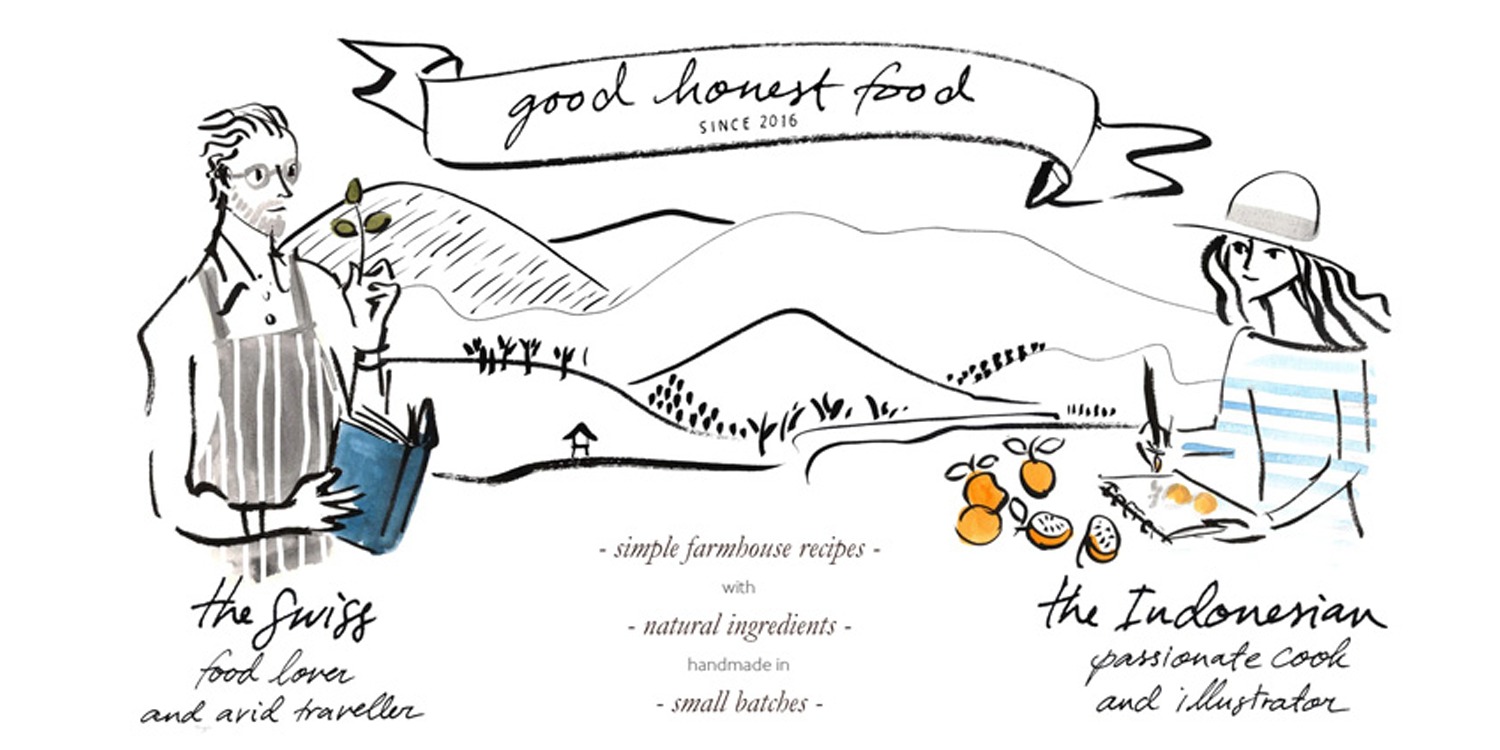 good honest food
SINCE 2016
- simple farmhouse recipes -
with
- natural ingredients -
handmade in
- small batches -
the Swiss
food lover
and avid traveller
the Indonesian
passionate cook
and illustrator